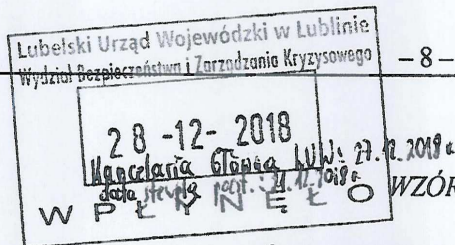 Lubelski Urząd Wojewódzki w Lublinie
Wydział Bezpieczeństwa i Zarządzania Kryzysowego
– 8 –
28 -12- 2018
Kancelaria Główna LUW: 27.12.2018 r.
data 31.12.2018 r.
WPŁYNĘŁO
WZÓR